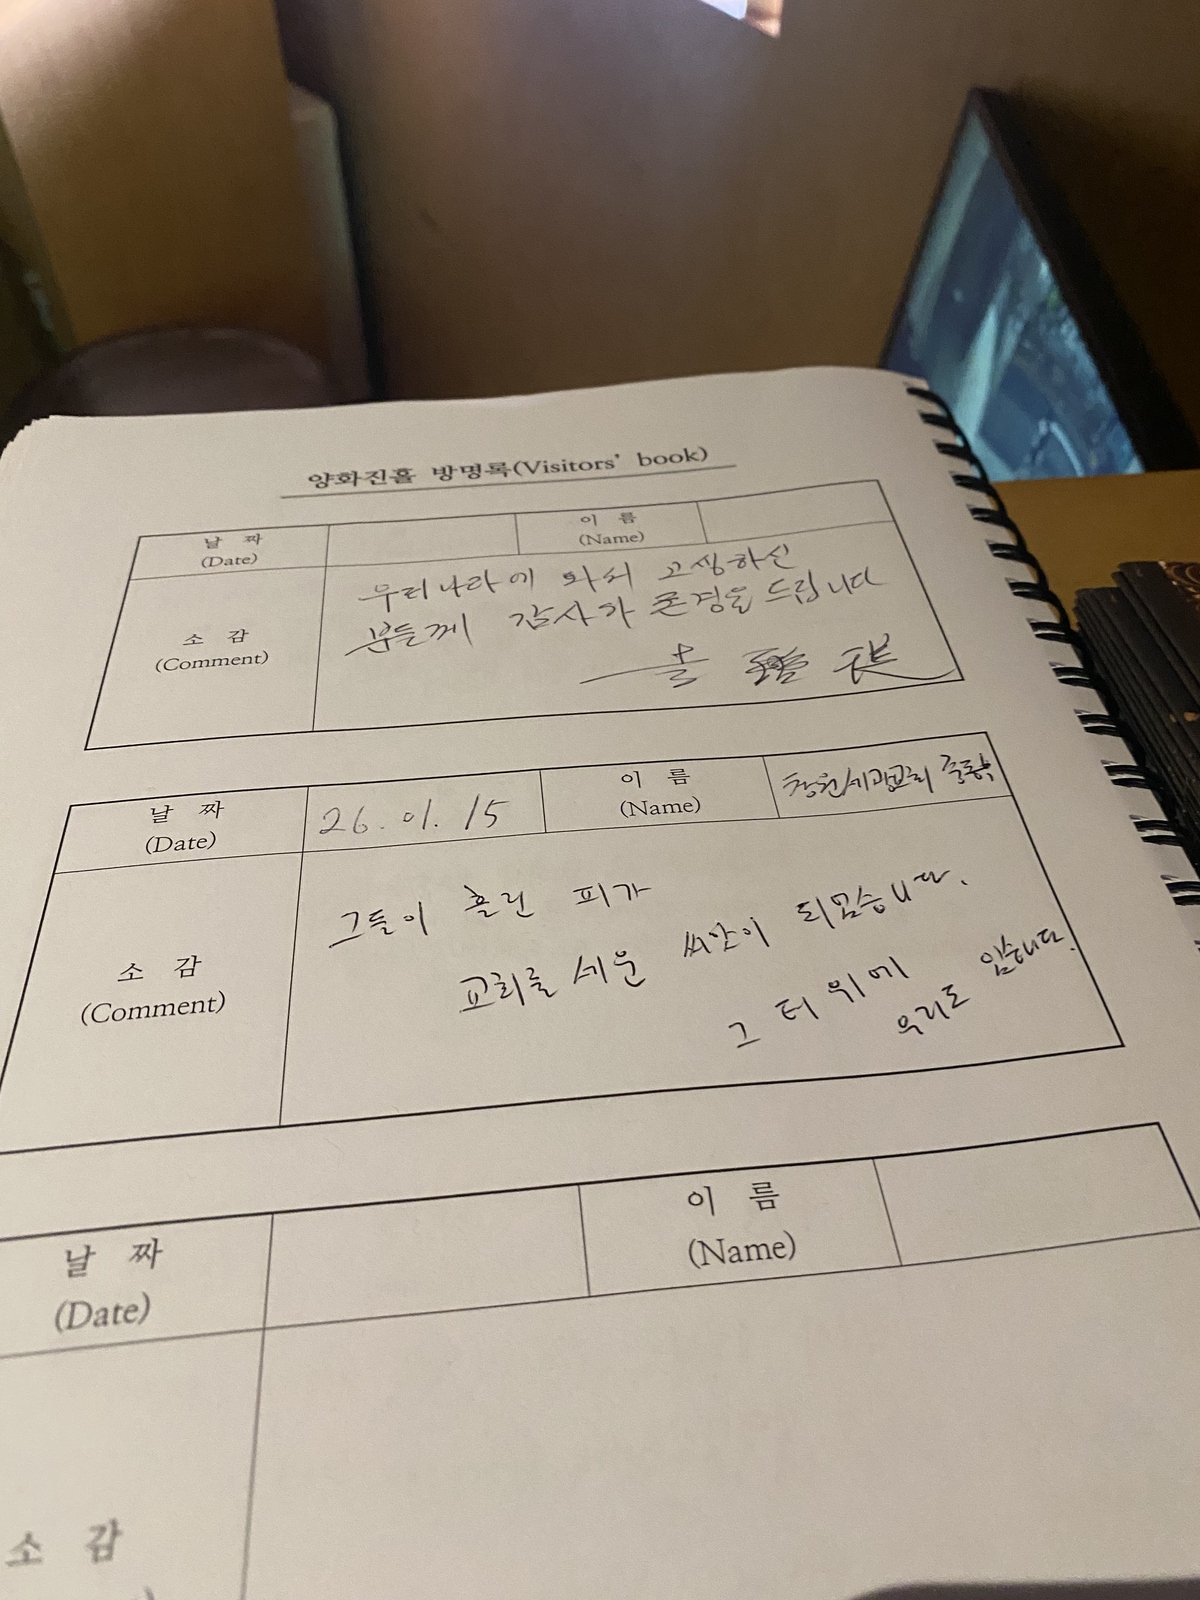 양화진홀 방명록(Visitors' book)
날 짜
(Date)
이 름
(Name)
소 감
(Comment)
우리나라에 와서 고생하신
분들께 감사가 존경을 드립니다
날 짜
(Date)
26. 01. 15
이 름
(Name)
창원세광교회 중등부
소 감
(Comment)
그들이 흘린 피가
교회를 세운 씨앗이 되었습니다.
그 터 위에
우리도 있습니다.
날 짜
(Date)
이 름
(Name)
소 감